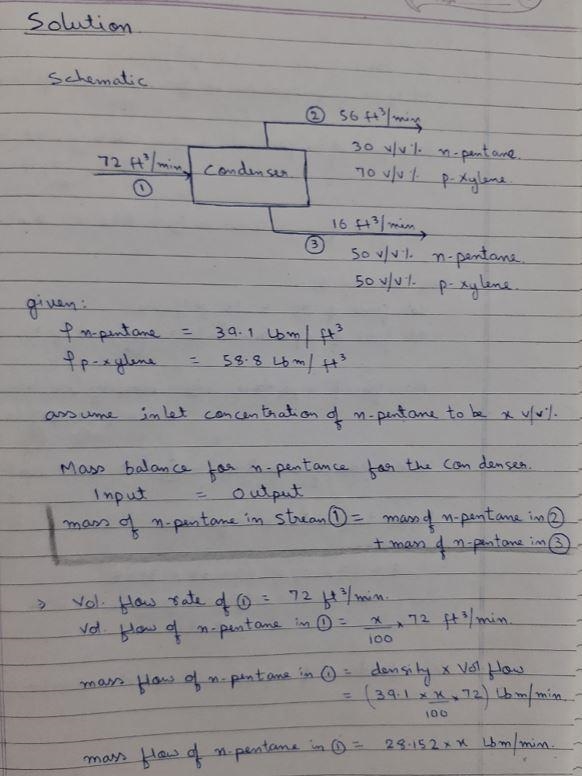 Solution
Schematic
② 56 ft³/min
30 v/v%. n-pentane.
70 v/v%. p-xylene.
72 ft³/min
①
Condenser
16 ft³/min
③
50 v/v%. n-pentane.
50 v/v%. p-xylene.
given:
ρ n-pentane = 39.1 Lbm/ft³
ρ p-xylene = 58.8 Lbm/ft³
assume inlet concentration of n-pentane to be x v/v%.
Mass balance for n-pentance for the Condenser.
Input = Output
mass of n-pentane in Stream ① = mass of n-pentane in ②
+ mass of n-pentane in ③
⇒ Vol. flow rate of ① = 72 ft³/min.
Vol. flow of n-pentane in ① = x/100 × 72 ft³/min.
mass flow of n-pentane in ① = density × Vol flow
= (39.1 × x/100 × 72) Lbm/min
mass flow of n-pentane in ① = 28.152 × x Lbm/min.